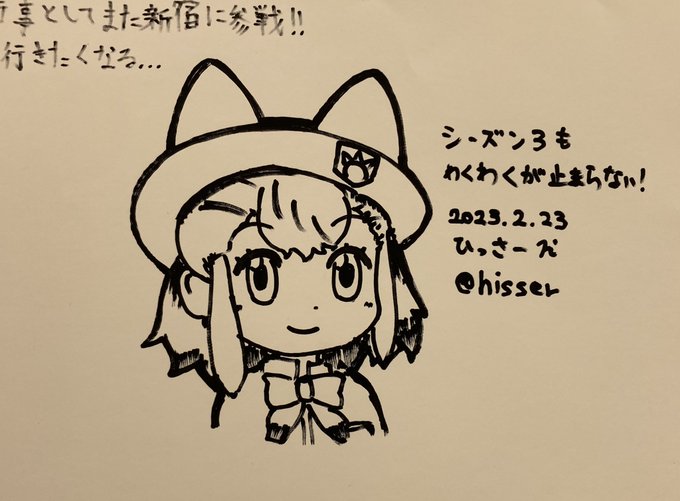 事としてまた新宿に参戦!!
行きたくなる...
シーズン3も
わくわくが止まらない!
2023.2.23
ひっさーん
@hisser